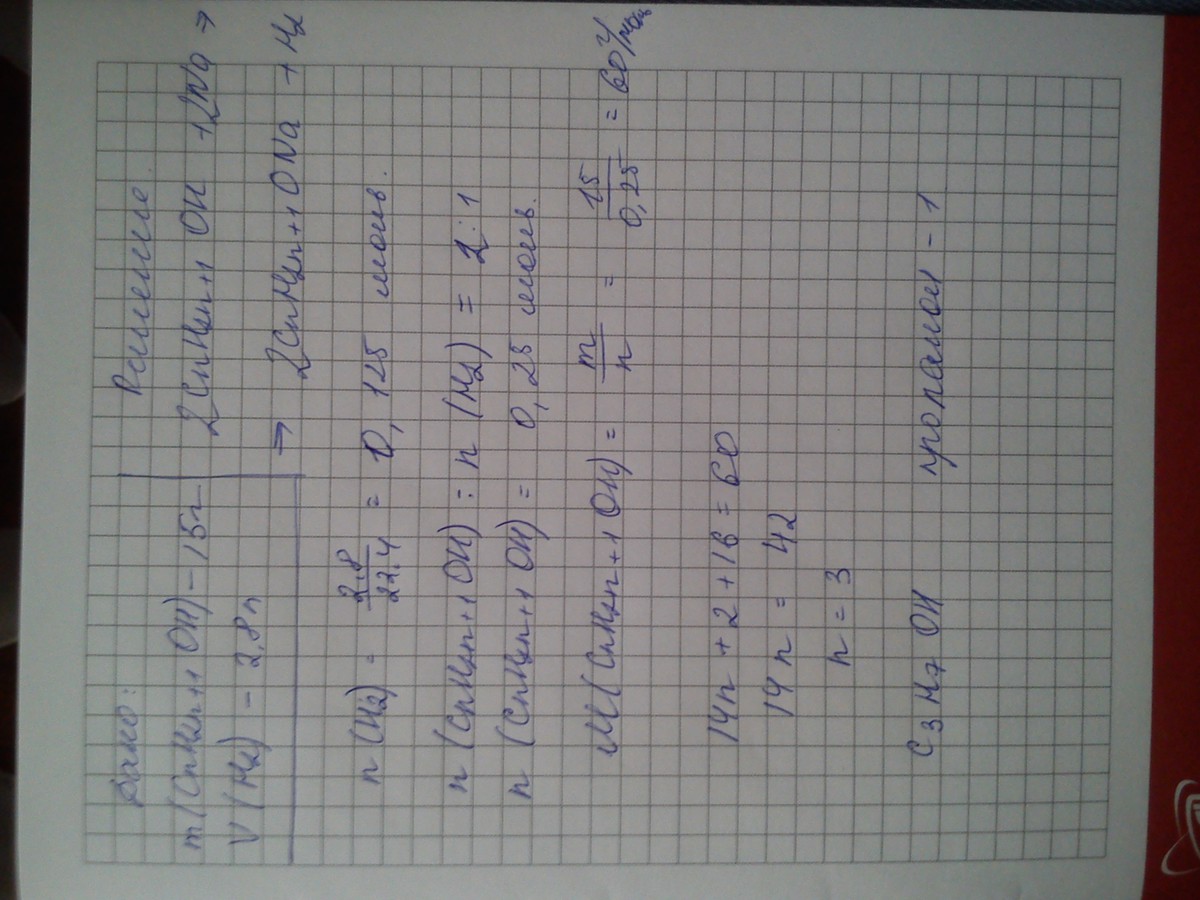 Дано:
m(CnH2n+1 OH) - 15г
V(H2) - 2,8л
Решение.
2CnH2n+1 OH + 2Na →
→ 2CnH2n+1 ONa + H2
n(H2) = 2,8/22,4 = 0,125 моль.
n(CnH2n+1 OH) : n(H2) = 2 : 1
n(CnH2n+1 OH) = 0,25 моль.
M(CnH2n+1 OH) = m/n = 15/0,25 = 60 г/моль
14n + 2 + 16 = 60
14n = 42
n = 3
C3H7OH пропанол - 1